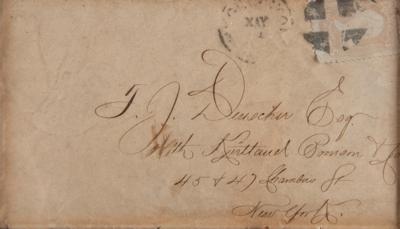 MAY
T. J. Duscher Esq.
With Kirtland Bronson & Co
45 & 47 Chambers St
New York.